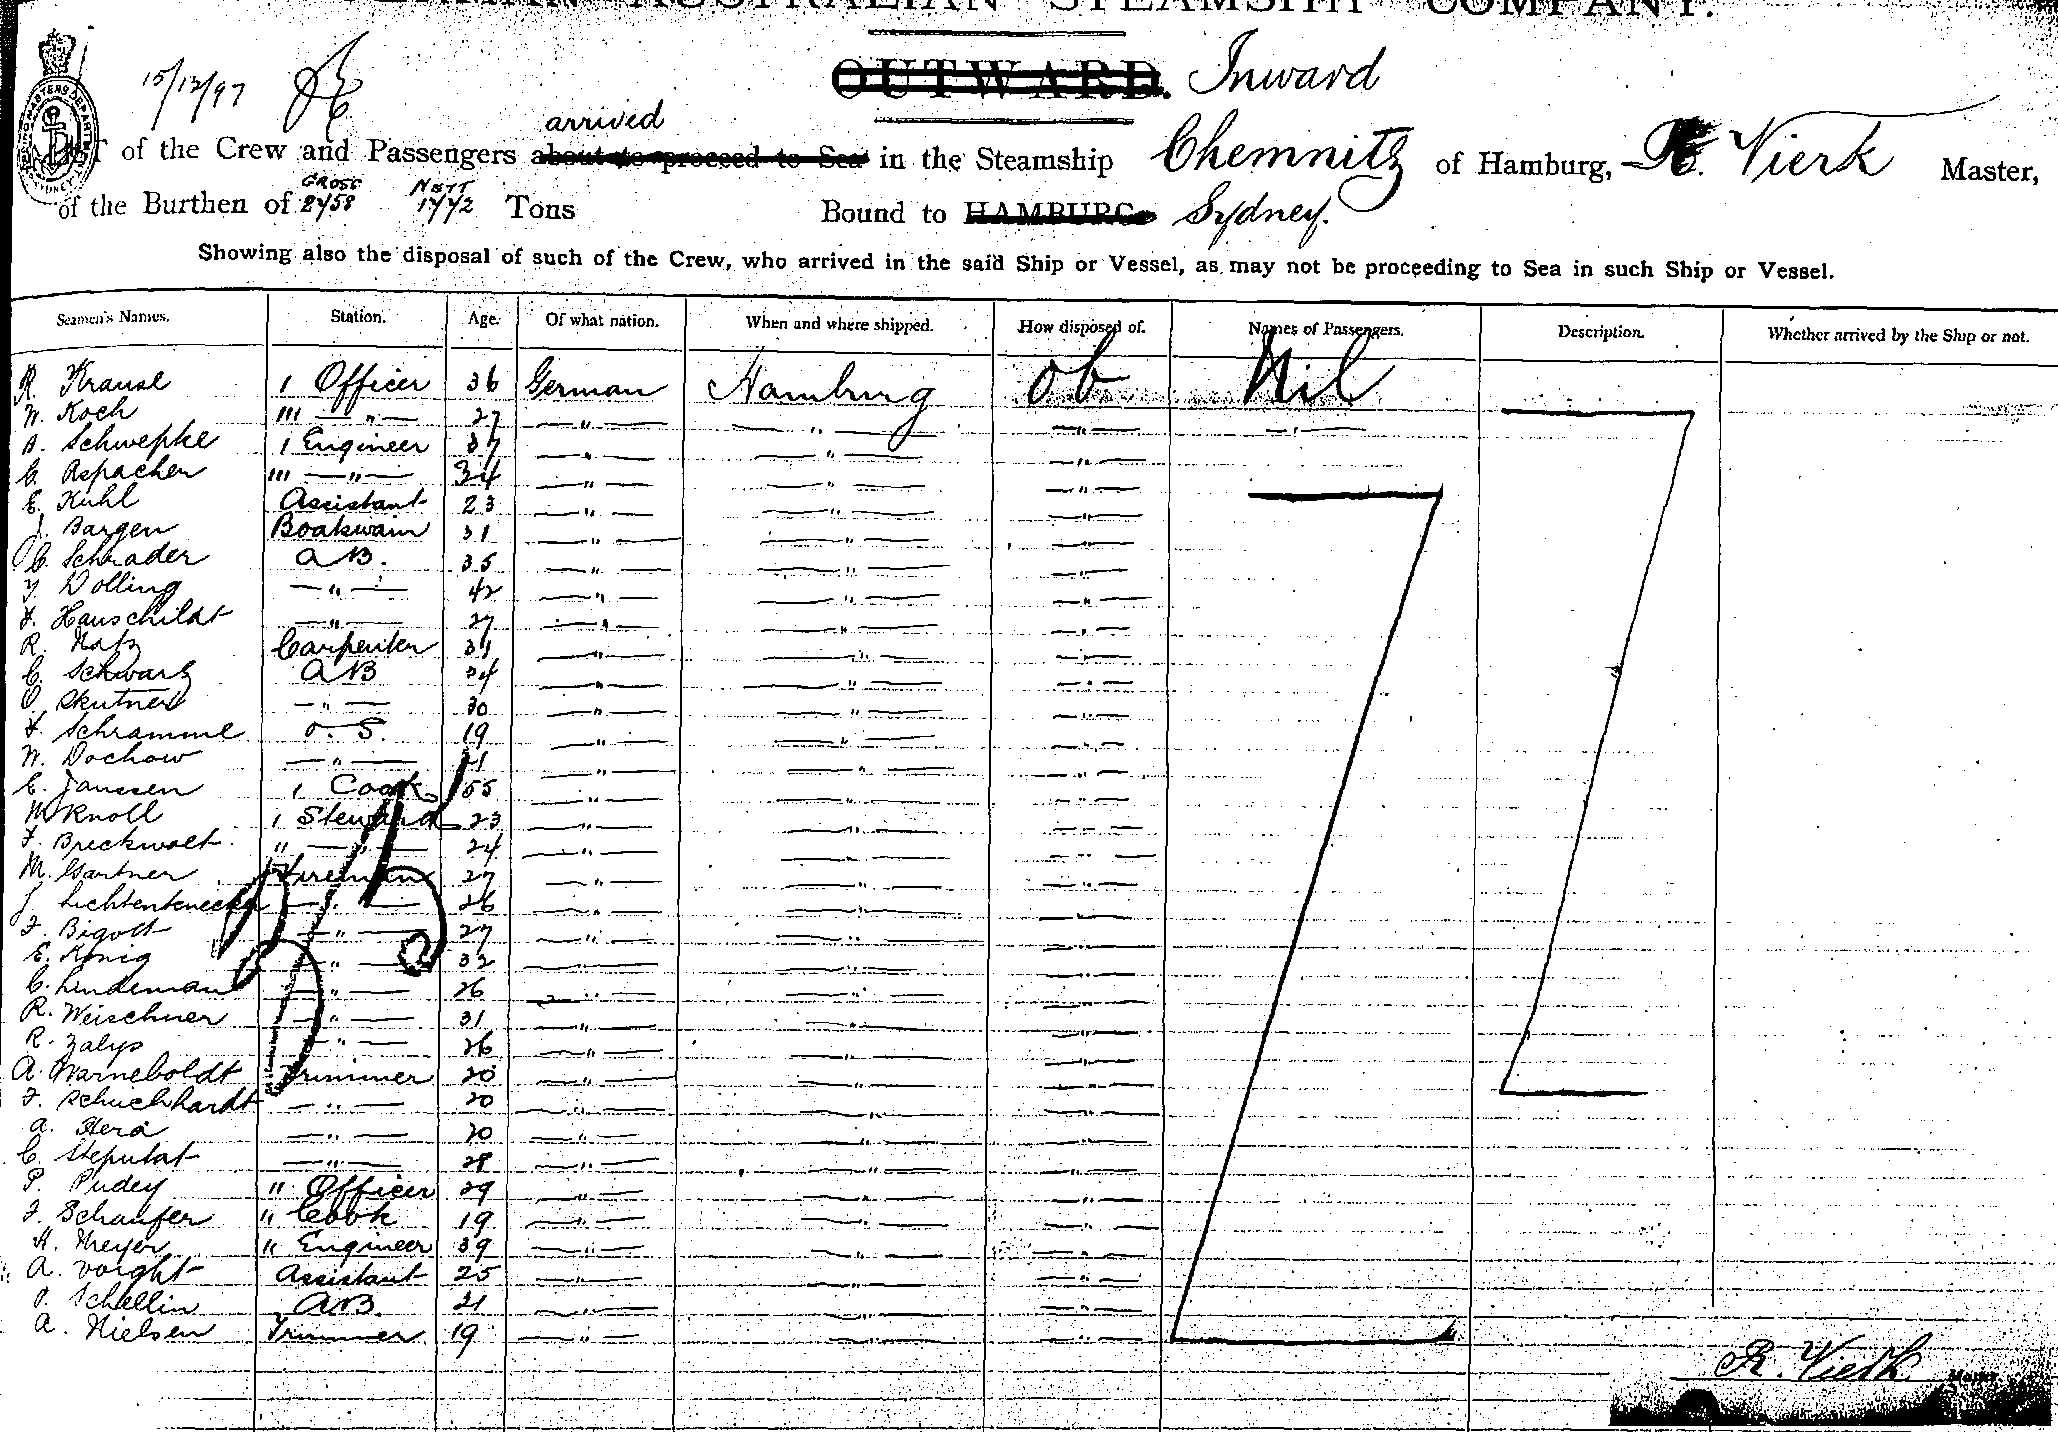 GERMAN AUSTRALIAN STEAMSHIP COMPANY.
15/12/97
OUTWARD. Inward
arrived
LIST of the Crew and Passengers about to proceed to Sea in the Steamship Chemnitz of Hamburg, R. Vierk Master,
GROSS NETT
of the Burthen of 2758 1772 Tons Bound to HAMBURG Sydney.
Showing also the disposal of such of the Crew, who arrived in the said Ship or Vessel, as may not be proceeding to Sea in such Ship or Vessel.
Seamen's Names. Station. Age. Of what nation. When and where shipped. How disposed of. Names of Passengers. Description. Whether arrived by the Ship or not.
R. Krause I Officer 36 German Hamburg Ob Nil
W. Koch III — " — 27 — " — — " — — " — — " —
A. Schwepke I Engineer 37 — " — — " — — " —
C. Aspacher III — " — 34 — " — — " — — " —
E. Kuhl Assistant 23 — " — — " — — " —
J. Bargen Boatswain 31 — " — — " — — " —
C. Schrader AB. 35 — " — — " — — " —
Dolling — " — 42 — " — — " — — " —
F. Hauschildt — " — 27 — " — — " — — " —
R. Carpenter 31 — " — — " — — " —
C. Schwarz AB 24 — " — — " — — " —
O. Skutner — " — 30 — " — — " — — " —
F. Schramme O. S. 19 — " — — " — — " —
W. Dochow — " — 21 — " — — " — — " —
C. Janssen I Cook 55 — " — — " — — " —
M Knoll I Steward 23 — " — — " — — " —
F. Breckwolt " — " — 24 — " — — " — — " —
M. Gartner Fireman 27 — " — — " — — " —
J. Lichtenknecker — " — 26 — " — — " — — " —
F. Bigott — " — 27 — " — — " — — " —
E. König — " — 32 — " — — " — — " —
C. Lindeman — " — 26 — " — — " — — " —
R. Weischner — " — 31 — " — — " — — " —
R. Zalys — " — 26 — " — — " — — " —
A. Warneboldt Trimmer 20 — " — — " — — " —
F. Schuchhardt — " — 20 — " — — " — — " —
A. — " — 20 — " — — " — — " —
C. Steputat — " — 28 — " — — " — — " —
P. Pudey " Officer 29 — " — — " — — " —
F. Schaufer " Cook 19 — " — — " — — " —
H. Meyer " Engineer 39 — " — — " — — " —
A. Voight Assistant 25 — " — — " — — " —
Schellin AB. 21 — " — — " — — " —
A. Nielsen Trimmer 19 — " — — " — — " —
R. Vierk Master